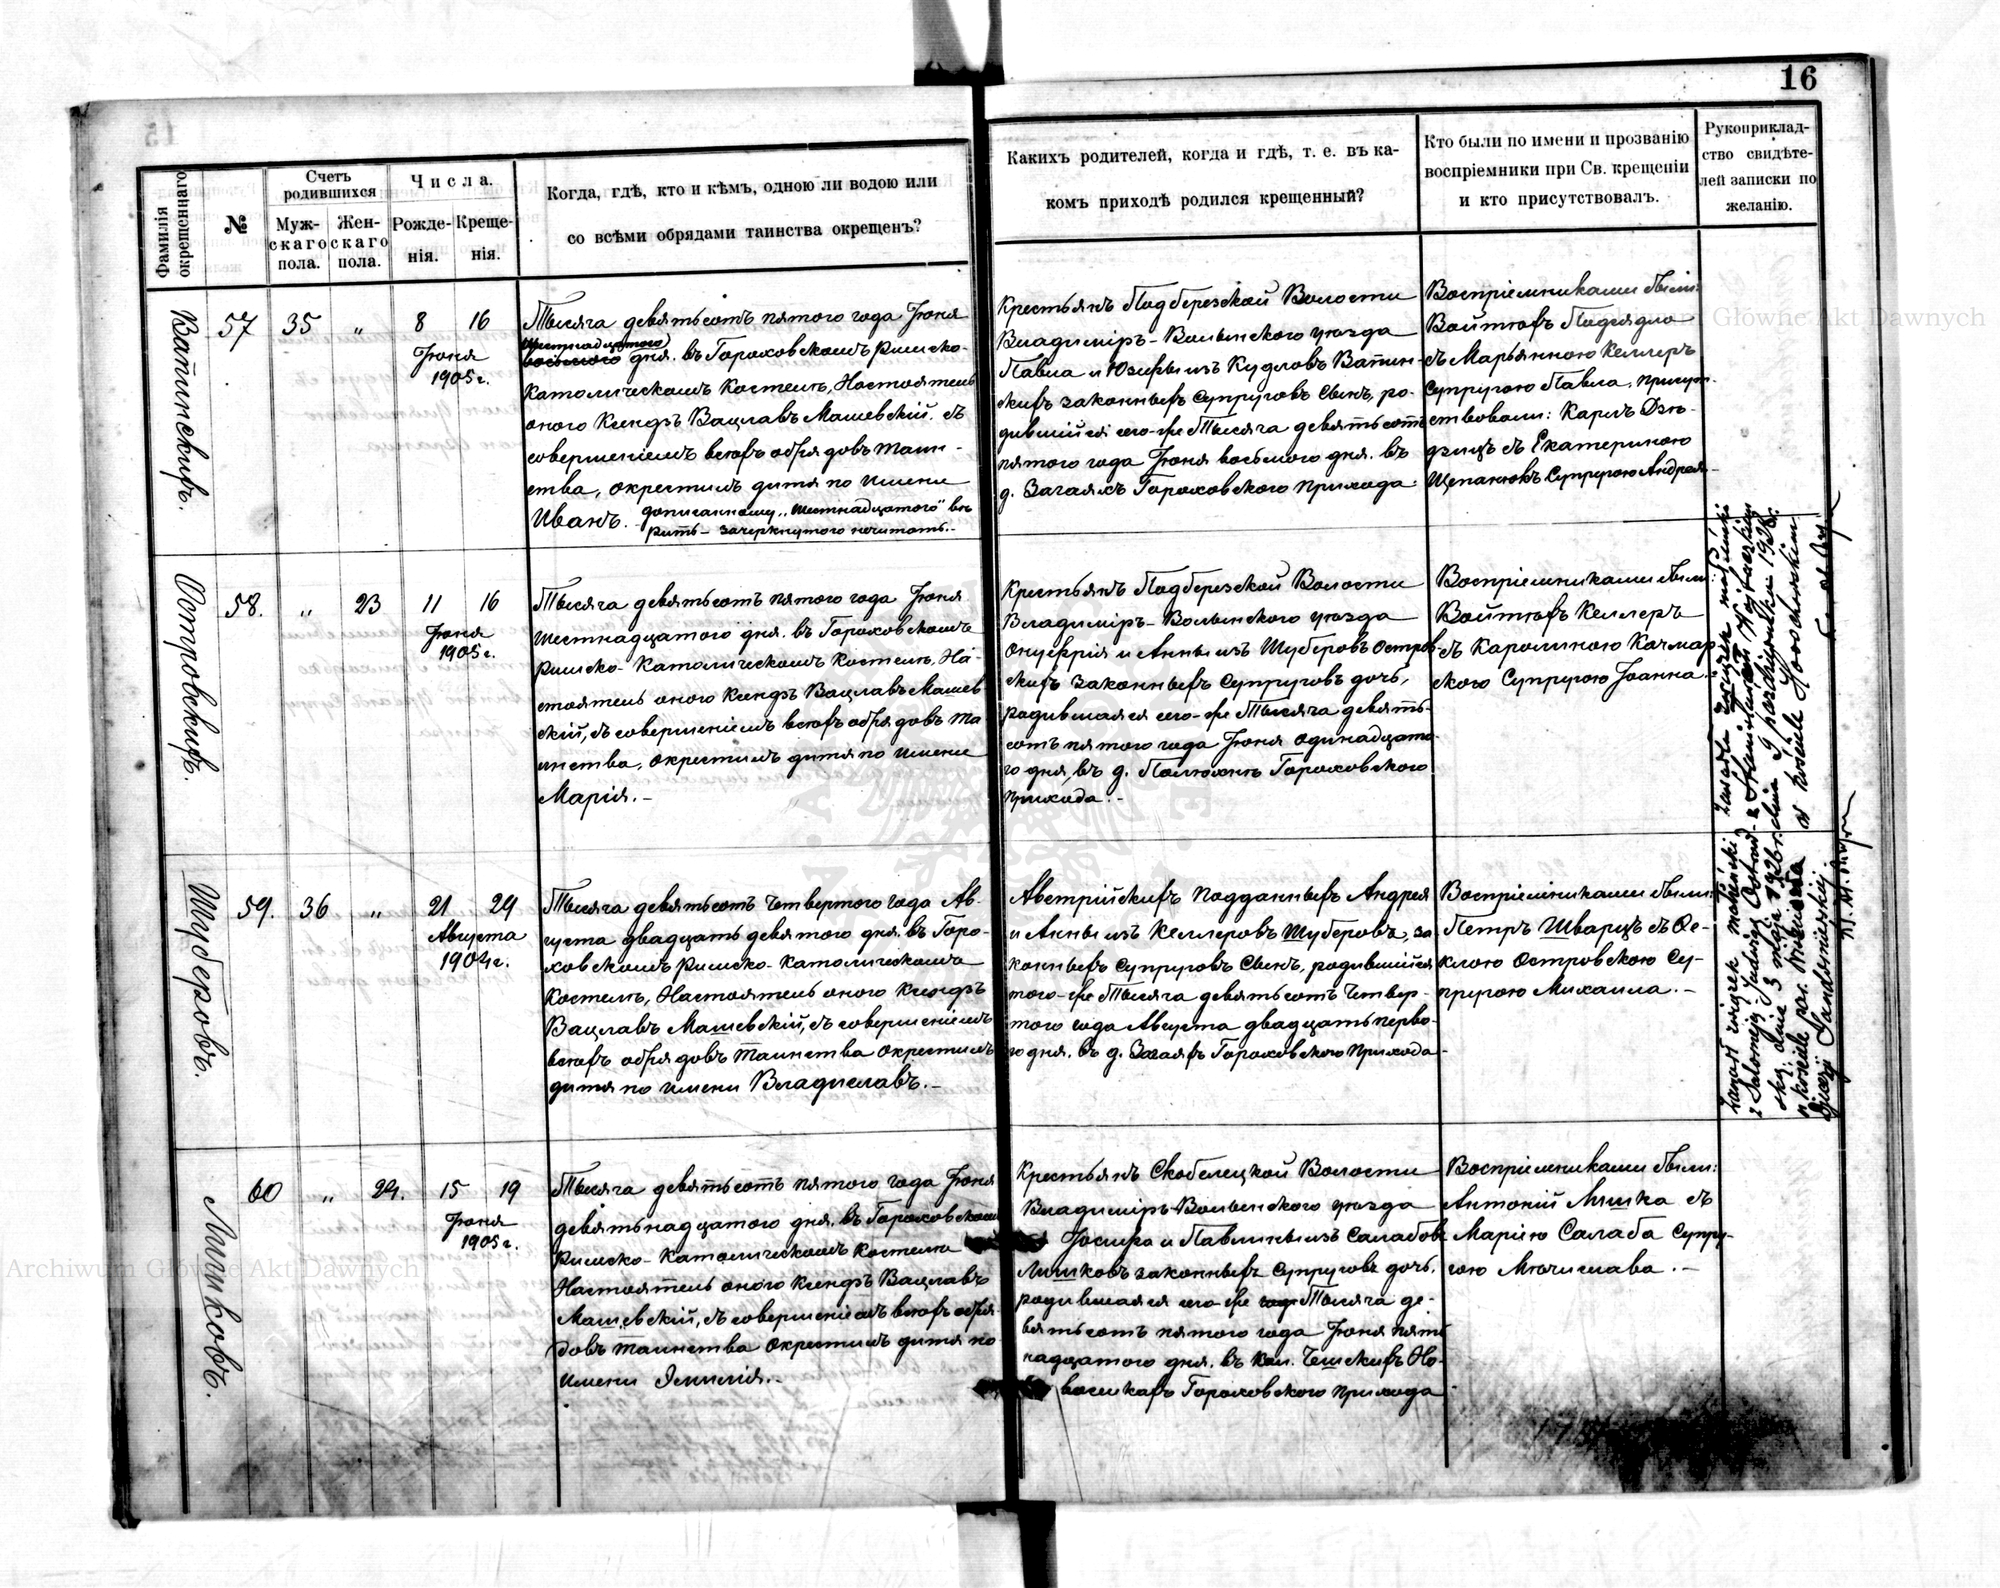 16
Фамилія окрещеннаго
№
Счетъ родившихся
Муж-
скаго
пола.
Жен-
скаго
пола.
Числа.
Рожде-
нія.
Креще-
нія.
Когда, гдѣ, кто и кѣмъ, одною ли водою или
со всѣми обрядами таинства окрещенъ?
Какихъ родителей, когда и гдѣ, т. е. въ ка-
комъ приходѣ родился крещенный?
Кто были по имени и прозванію
воспріемники при Св. крещеніи
и кто присутствовалъ.
Рукоприклад-
ство свидѣте-
лей записки по
желанію.
Ватинскихъ.
57 35 „ 8 16
Іюня
1905 г.
Тысяча девятьсотъ пятого года Іюня
шестнадцатого
восьмого дня. въ Гороховскомъ Римско-
Католическомъ Костелѣ, Настоятель
оного Ксендзъ Вацлавъ Машевскій. съ
совершеніемъ всѣхъ обрядовъ Таин-
ства, окрестилъ дитя по имени
Иванъ. дописанному „шестнадцатого" вѣ-
рить – зачеркнутого нечитать.–
Крестьянъ Подберезской Волости
Владиміръ-Волынского уѣзда
Павла и Юзефы изъ Кудловъ Ватин-
скихъ законныхъ супруговъ сынъ, ро-
дившійся сего-же Тысяча девятьсотъ
пятого года Іюня восьмого дня. въ
д. Загаяхъ Гороховского прихода.
Воспріемниками были:
Войтѣхъ Подядло
съ Марьянною Келлеръ
супругою Павла, присут-
ствовали: Карлъ Дзѣ-
дзицъ съ Екатериною
Щепанюкъ супругою Андрея
Островскихъ.
58. „ 23 11 16
Іюня
1905 г.
Тысяча девятьсотъ пятого года Іюня
шестнадцатого дня. въ Гороховскомъ
Римско-Католическомъ Костелѣ, На-
стоятель оного Ксендзъ Вацлавъ Машев-
скій, съ совершеніемъ всѣхъ обрядовъ та-
инства, окрестилъ дитя по имени
Марія.–
Крестьянъ Подберезской Волости
Владиміръ-Волынского уѣзда
Онуфрія и Анны изъ Шуберовъ Остров-
скихъ законныхъ супруговъ дочь,
родившаяся сего-же Тысяча девять-
сотъ пятого года Іюня одинадцато-
го дня, въ д. Полюхнѣ Гороховского
прихода.–
Воспріемниками были:
Войтѣхъ Келлеръ
съ Каролиною Качмар-
ского супругою Іоанна.
Шуберовъ.
59. 36 „ 21 29
Августа
1904 г.
Тысяча девятьсотъ четвертого года Ав-
густа двадцать девятого дня. въ Горо-
ховскомъ Римско-Католическомъ
Костелѣ, Настоятель оного Ксендзъ
Вацлавъ Машевскій, съ совершеніемъ
всѣхъ обрядовъ таинства окрестилъ
дитя по имени Владиславъ.–
Австрійскихъ подданныхъ Андрея
и Анны изъ Келлеровъ Шуберовъ, за-
конныхъ супруговъ сынъ, родившійся
того-же Тысяча девятьсотъ четвер-
того года Августа двадцать перво-
го дня. въ д. Загаяхъ Гороховского прихода
Воспріемниками были:
Петръ Шварцъ съ Ѳе-
клою Островскою су-
пругою Михаила.–
Лышковъ.
60 „ 24. 15 19
Іюня
1905 г.
Тысяча девятьсотъ пятого года Іюня
девятьнадцатого дня. въ Гороховскомъ
Римско-Католическомъ костелѣ
Настоятель оного Ксендзъ Вацлавъ
Машевскій, съ совершеніемъ всѣхъ обря-
довъ таинства окрестилъ дитя по
имени Эмилія.–
Крестьянъ Скобелецкой Волости
Владиміръ-Волынского уѣзда
Іосифа и Павлины изъ Салабовъ
Лышковъ законныхъ супруговъ дочь,
родившаяся сего-же Тысяча де-
вятьсотъ пятого года Іюня пять-
надцатого дня. въ кол. Чешскихъ Но-
восилкахъ Гороховского прихода
Воспріемниками были:
Антоній Лышка съ
Марією Салаба супру-
гою Мѣчислава.–
Zawarł związek małżeński
z Salomeją Jadwigą
dnia 3 maja 192
w kościele par.
Djecezji Sandomierskiej
Zawarła związek małżeński
z Stanisławem
dnia 9 października 1928 r.
w kościele Horochowskim
Archiwum Główne Akt Dawnych
Główne Akt Dawnych